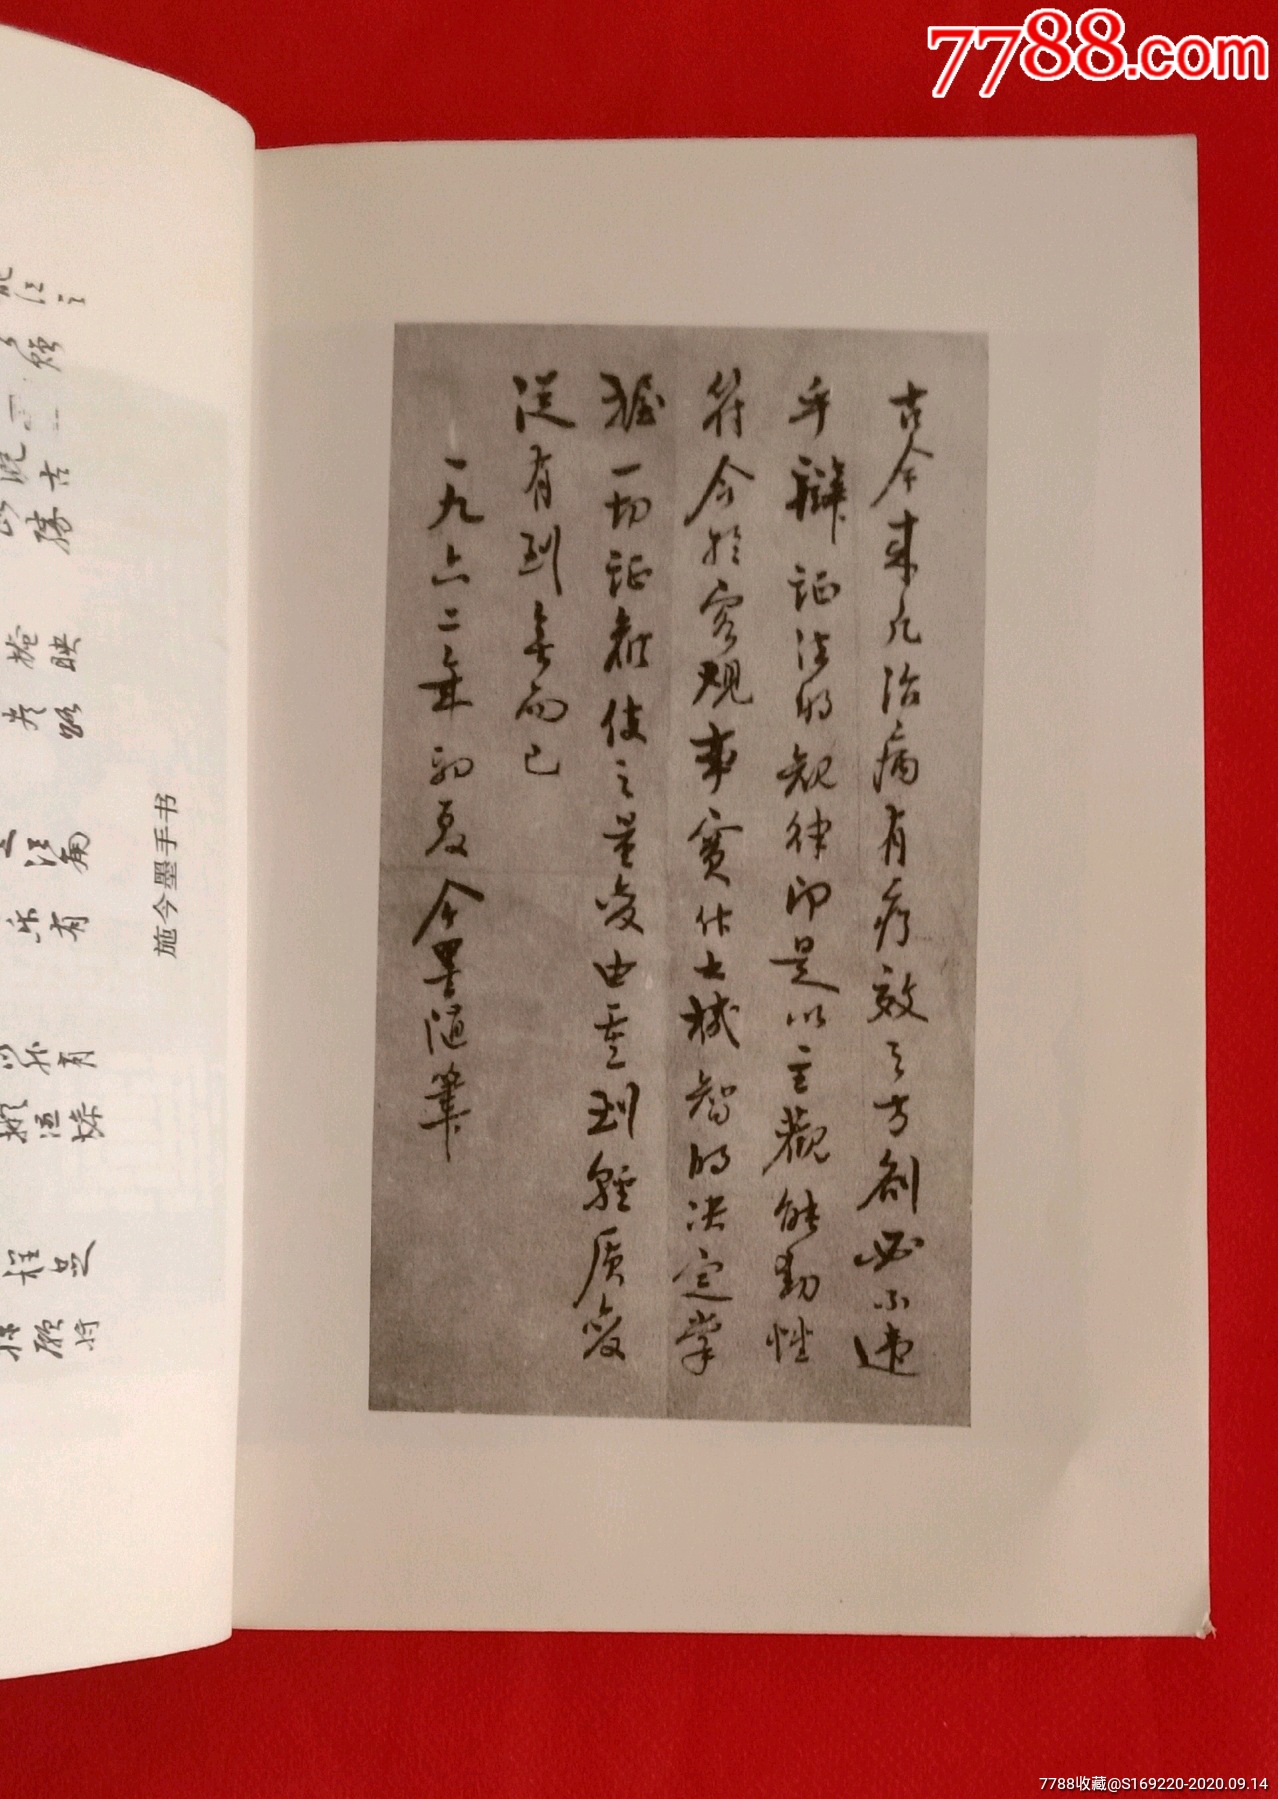 7788.com
施今墨手书
古今来凡治病有疗效之方剂必不违
乎辩证法的规律即是以主觀能动性
符合於客观事实作出机智的决定掌
握一切证候使之量变由重到轻质变
從有到无而已
一九六二年初夏今墨随筆
7788收藏@S169220-2020.09.14